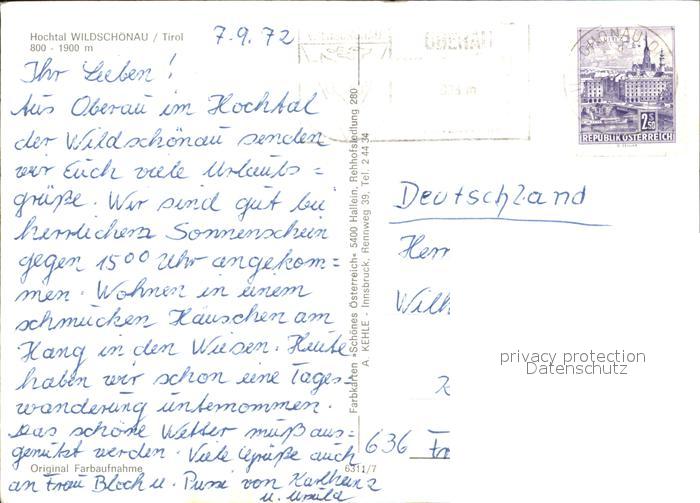 Hochtal WILDSCHÖNAU / Tirol
800 - 1900 m
7.9.72
Ihr Lieben!
Aus Oberau im Hochtal
der Wildschönau senden
wir Euch viele Urlaubs=
grüße. Wir sind gut bei
herrlichem Sonnenschein
gegen 15 00 Uhr angekom=
men. Wohnen in einem
schmucken Häuschen am
Hang in den Wiesen. Heute
haben wir schon eine Tages=
wanderung unternommen.
Das schöne Wetter muß aus=
genützt werden. Viele Grüße auch
an Frau Bloch u. Pussi von Karlheinz
u. Ursula
Original Farbaufnahme
6311/7
Farbkarten »Schönes Österreich« 5400 Hallein, Rehhofsiedlung 280
A. KEHLE - Innsbruck, Rennweg 39, Tel. 2 44 34
OBERAU
2S50
REPUBLIK ÖSTERREICH
Deutschland
Herr
Wilh
636 Fr
privacy protection
Datenschutz